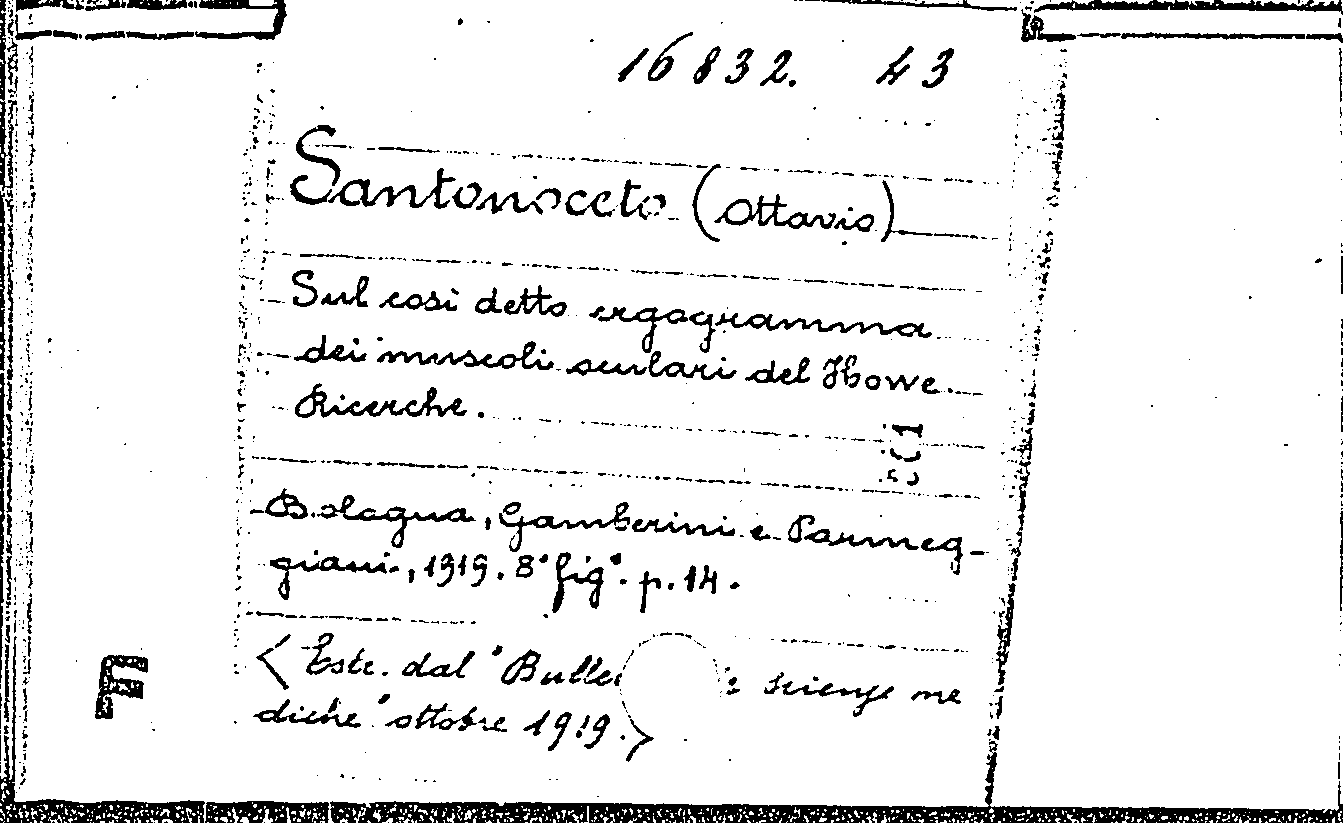 16832. 43
Santonoceto (Ottavio)
Sul cosi detto ergogramma
dei muscoli oculari del Howe.
Ricerche.
Bologna, Gamberini e Parmeg-
giani, 1919. 8° fig°. p. 14.
< Estr. dal "Bulle scienze me
diche" ottobre 1919. >
F